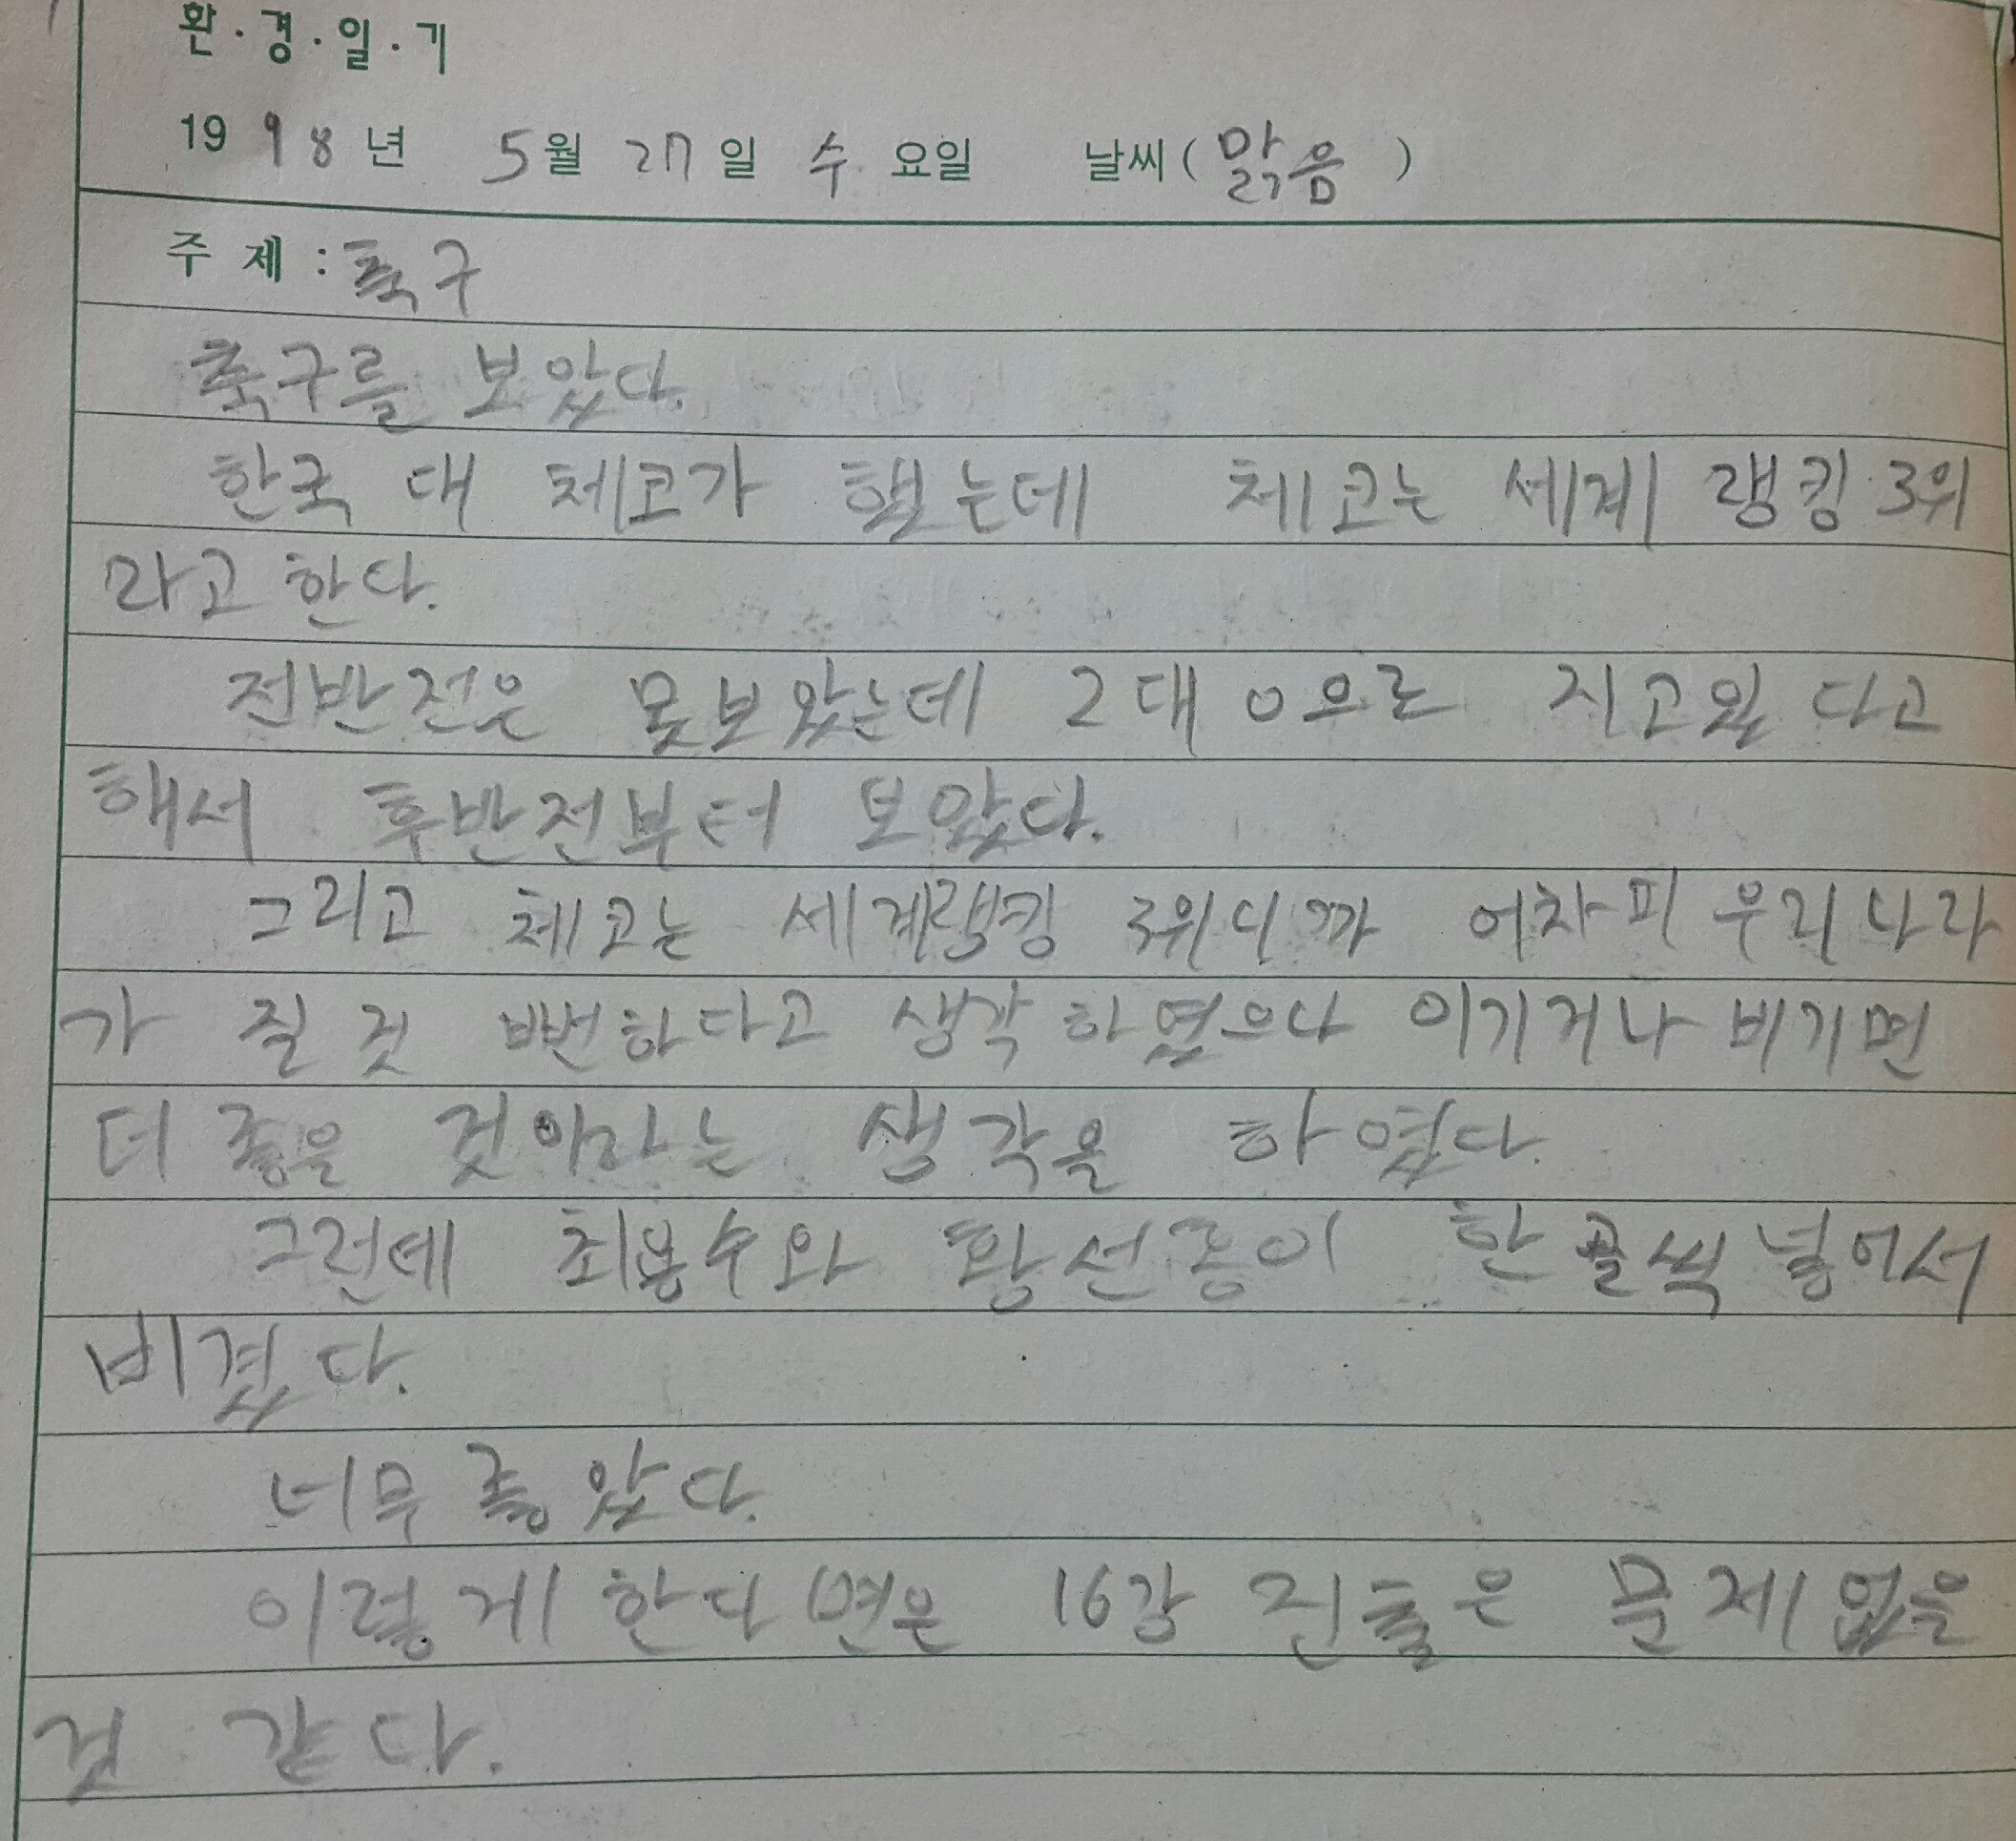 환·경·일·기
1998년 5월 27일 수요일 날씨(맑음)
주제:축구
축구를 보았다.
한국 대 체코가 했는데 체코는 세계 랭킹 3위
라고 한다.
전반전은 못보았는데 2대 0으로 지고있다고
해서 후반전부터 보았다.
그리고 체코는 세계랭킹 3위니까 어차피 우리나라
가 질 것 뻔하다고 생각하였으나 이기거나 비기면
더 좋은 것이라는 생각을 하였다.
그런데 최용수와 황선홍이 한골씩 넣어서
비겼다.
너무 좋았다.
이렇게 한다면은 16강 진출은 문제없을
것 같다.